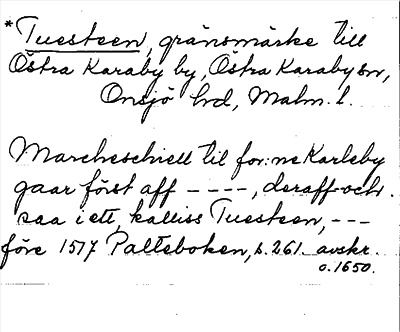 *Tuesteen, gränsmärke till
Östra Karaby by, Östra Karaby sn,
Onsjö hd, Malm. l.
Marcheschiell til for:ne Karleby
gaar först aff ----, deraff och
saa i ett, kalliss Tuesteen, ---
före 1517 Palteboken, s. 261. avskr.
o. 1650.